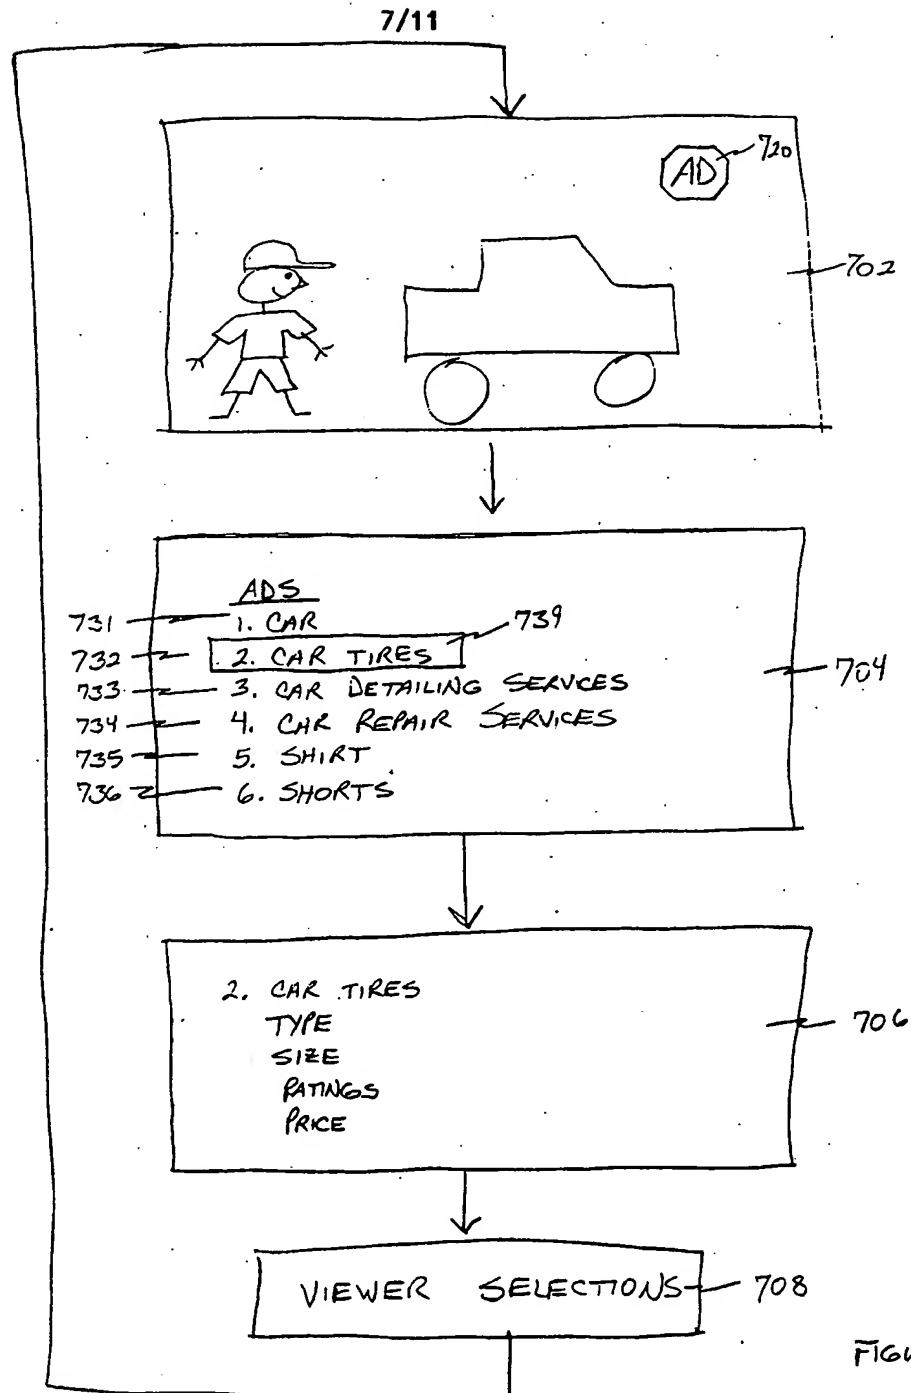 7/11
AD 720
702
ADS
731 1. CAR 739
732 2. CAR TIRES
704
733 3. CAR DETAILING SERVICES
734 4. CAR REPAIR SERVICES
735 5. SHIRT
736 6. SHORTS
2. CAR TIRES
TYPE
706
SIZE
RATINGS
PRICE
VIEWER SELECTIONS 708